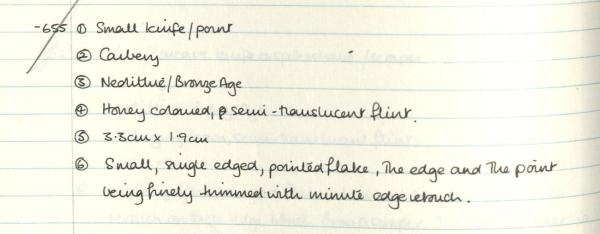 -655 ① Small knife/point
② Carbery
③ Neolithic/Bronze Age
④ Honey coloured, semi-translucent flint.
⑤ 3.3cm x 1.9cm
⑥ Small, single edged, pointed flake, The edge and The point
being finely trimmed with minute edge retouch.